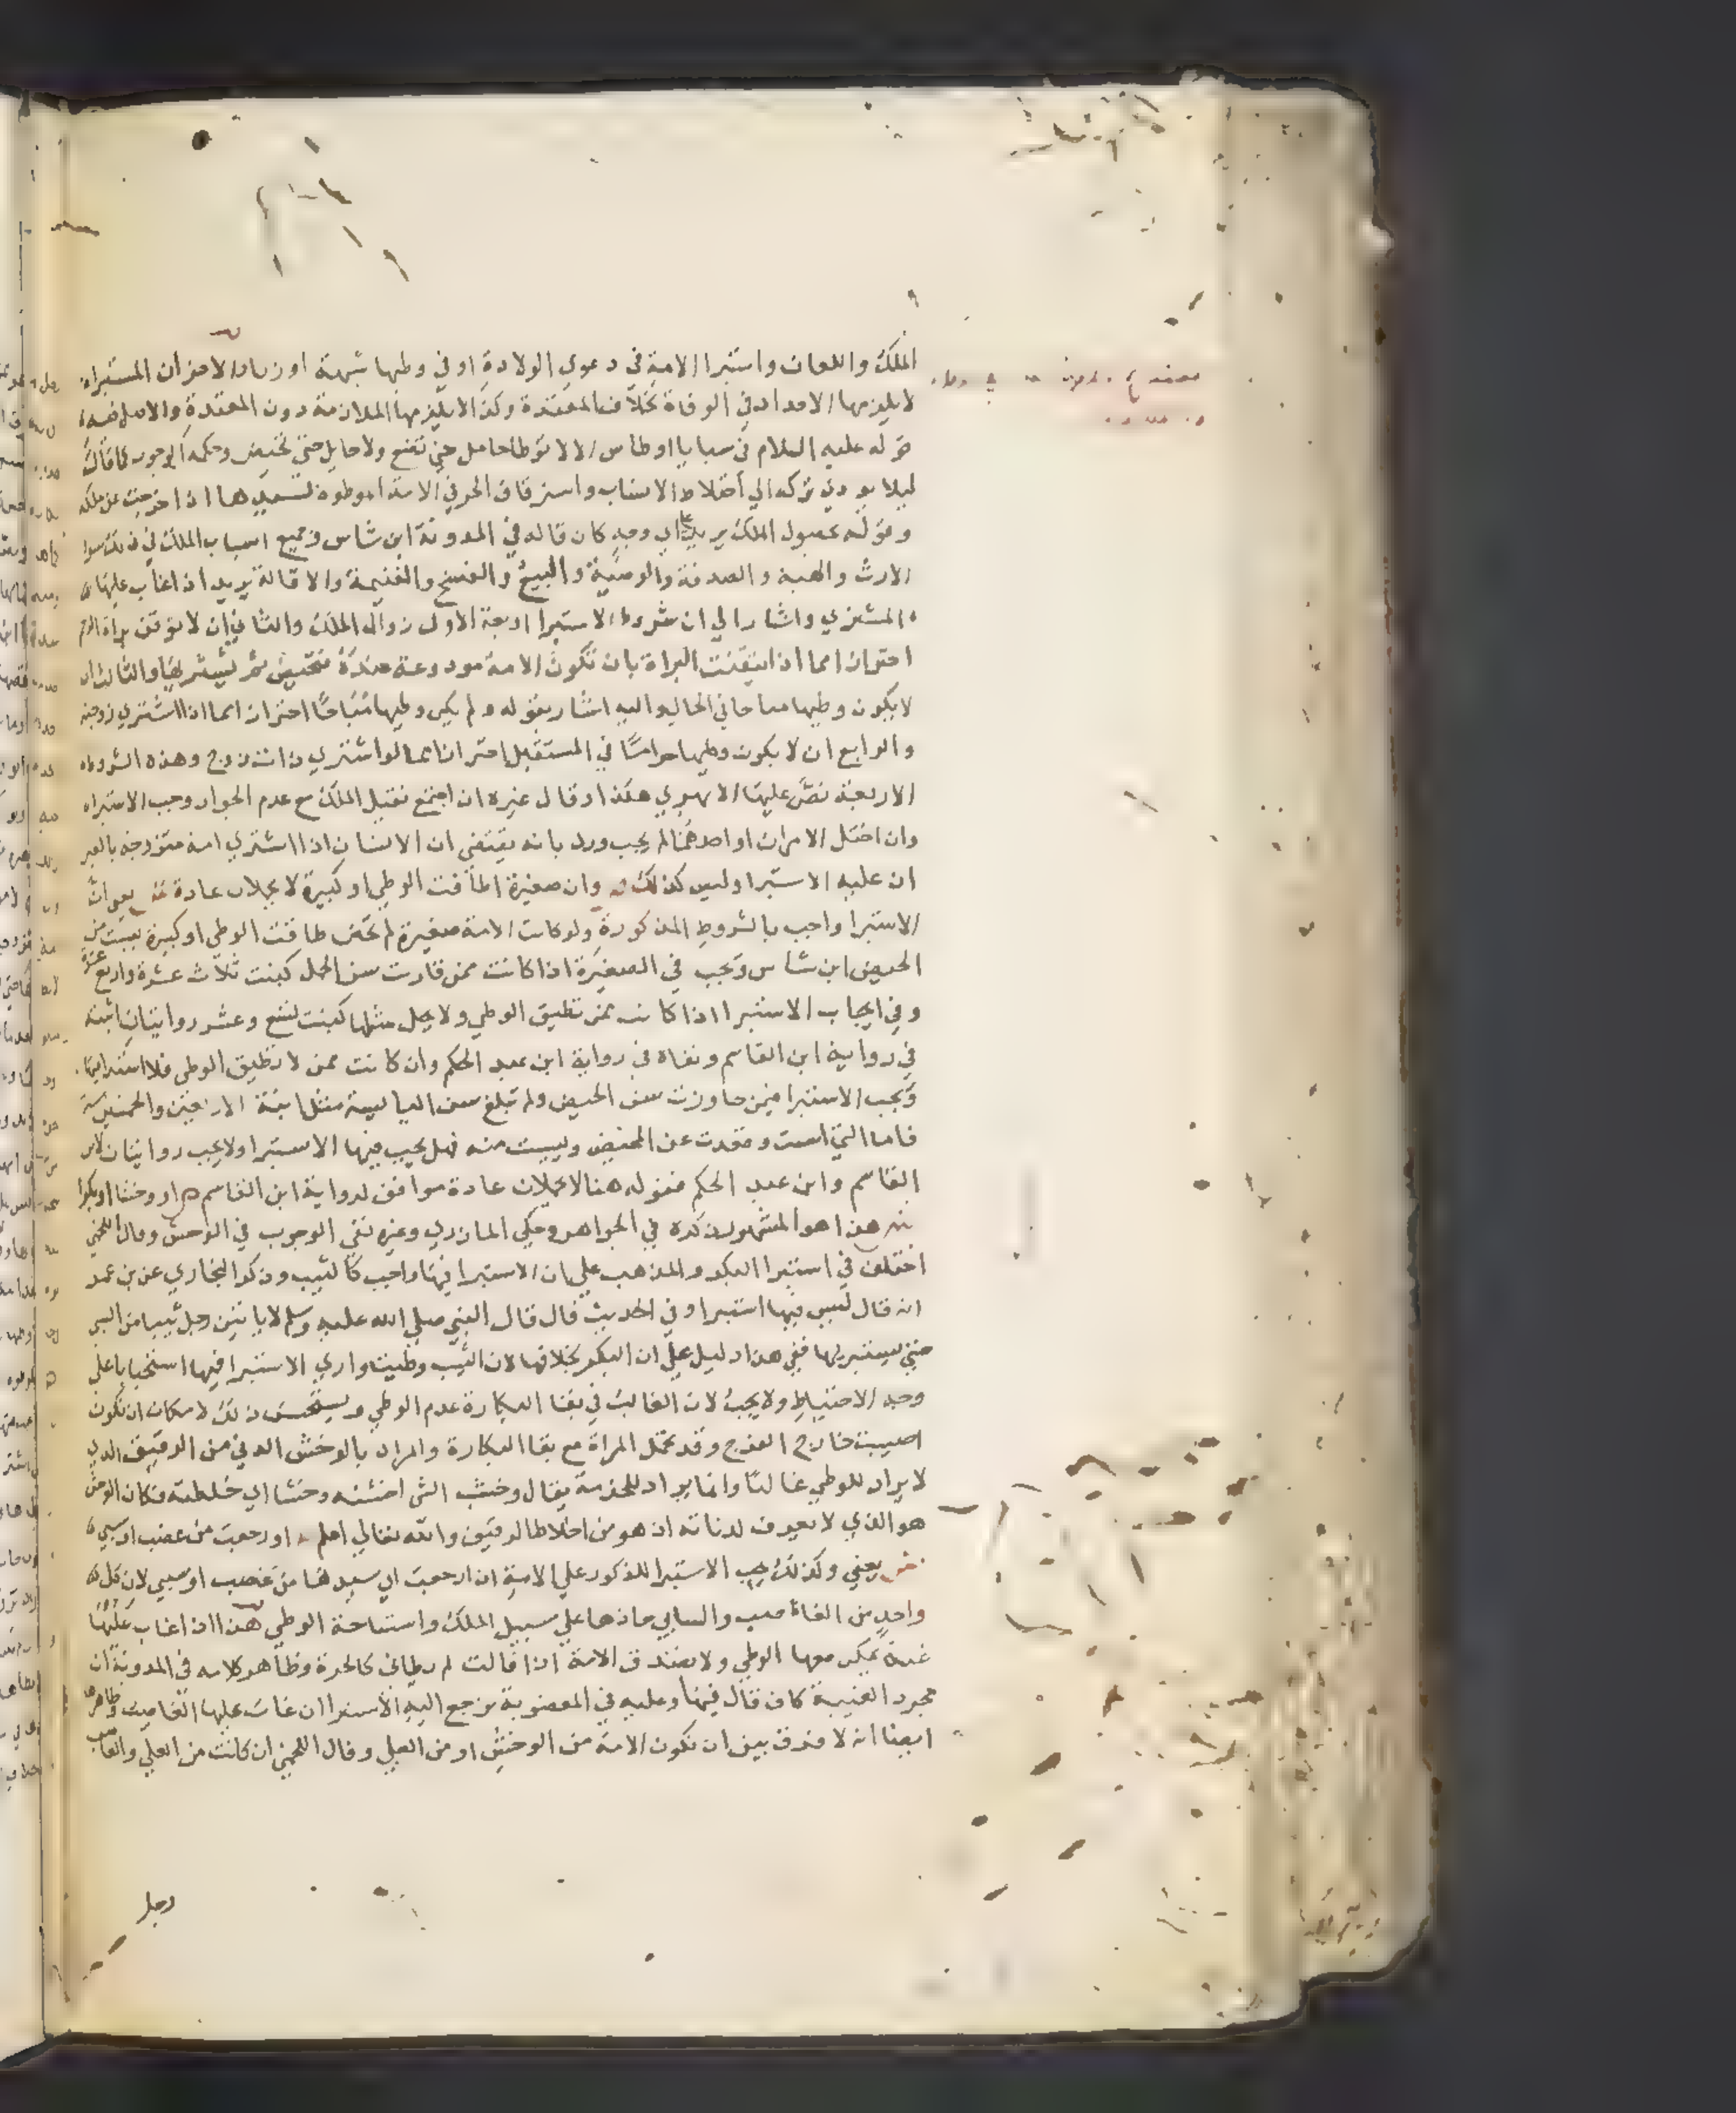 الملك واللعان واستبرا الامة في دعوي الولادة او في وطيها شبهة او زنا والامران المستبراه
لا يلزمها الاحداد في الوفاة بخلاف المعتدة وكذا لا يلزمها الملازمة دون المعتدة والاصل فيه
قوله عليه السلام في سبايا اوطاس الا لا توطا حامل حتي تضع ولا حايل حتي تحيض وحكمه الوجوب كما قال
ليلا يودي تركه الي اختلاط الانساب واسترقاق الحر في الامة الموطوة لسيدها اذا خرجت عن ملكه
وقوله بحصول الملك يريد علي اي وجه كان قاله في المدونة ابن شاس وجميع اسباب الملك في ذلك سوا
الارث والهبة والصدقة والوصية والبيع والفسخ والغنيمة والاقالة يريد اذا غاب عليها
المشتري واشار الي ان شروط الاستبرا اربعة الاول زوال الملك والثاني ان لا توقن براة الرحم
احترازا مما اذا تيقنت البراة بان تكون الامة مودوعة عنده فتحيض ثم يشتريها والثالث ان
لا يكون وطيها مباحا في الحال واليه اشار بقوله ولم يكن وطيها مباحا احترازا مما اذا اشتري زوجته
والرابع ان لا يكون وطيها حراما في المستقبل احترازا مما لو اشتري ذات زوج وهذه الشروط
الاربعة نص عليها الابهري هكذا وقال غيره ان اجتمع نقل الملك مع عدم الجواز وجب الاستبراء
وان اختل الامران او احدهما لم يجب ورد بانه يقتضي ان الانسان اذا اشتري امة متزوجة بالغير
ان عليه الاستبرا وليس كذلك وان صغيرة اطاقت الوطي او كبيرة لا يحملان عادة يعني ان
الاستبرا واجب بالشروط المذكورة ولو كانت الامة صغيرة لم تحض طاقت الوطي او كبيرة يست من
الحيض ابن شاس ويجب في الصغيرة اذا كانت ممن قاربت سن الحمل كبنت ثلاث عشرة واربع عشرة
وفي ايجاب الاستبرا اذا كانت ممن تطيق الوطي ولا يحمل مثلها كبنت تسع وعشر روايتان اثبته
في رواية ابن القاسم ونفاه في رواية ابن عبد الحكم وان كانت ممن لا تطيق الوطي فلا استبرا فيها
ويجب الاستبرا فيمن جاوزت سن الحيض ولم تبلغ سن اليايسة مثل ابنة الاربعين والخمسين سنة
فاما التي اسنت وقعدت عن المحيض ويست منه فهل يجب فيها الاستبرا ولا يجب روايتان لابن
القاسم وابن عبد الحكم فقوله هنا لا يحملان عادة موافق لرواية ابن القاسم ص او وخشا او بكرا
ش هذا هو المشهور ذكره في الجواهر وحكي المازري وغيره نفي الوجوب في الوخش وقال اللخمي
اختلف في استبرا البكر والمذهب علي ان الاستبرا فيها واجب كالثيب وذكر البخاري عن بن عمر
انه قال ليس فيها استبرا وفي الحديث قال قال النبي صلي الله عليه وسلم لا ياتين رجل ثيبا من السبي
حتي يستبريها ففي هذا دليل علي ان البكر بخلافها لان الثيب وطيت واري الاستبرا فيها استحبابا علي
وجه الاحتياط ولا يجب لان الغالب في بقا البكارة عدم الوطي ويستحسن ذلك لامكان ان تكون
اصيبت خارج الفرج وقد تحمل المراة مع بقا البكارة والمراد بالوخش الدني من الرقيق الذي
لا يراد للوطي غالبا وانما يراد للخدمة يقال وخش الشي اخشنه وخشا اي خلطته فكان الوخش
هو الذي لا يعرف لدناته اذ هو من اخلاط الرقيق والله تعالي اعلم او رجعت من غصب او سبي
ش يعني وكذلك يجب الاستبرا المذكور علي الامة اذا رجعت الي سيدها من غصب او سبي لان كل
واحد من الغاصب والسابي حازها علي سبيل الملك واستباحة الوطي هذا اذا غاب عليها
غيبة يمكن معها الوطي ولا تصدق الامة اذا قالت لم يطاني كالحرة وظاهر كلامه في المدونة ان
مجرد الغيبة كاف قال فيها وعليه في المغصوبة ترجع اليه الاستبرا ان غاب عليها الغاصب وظاهرها
ايضا انه لا فرق بين ان تكون الامة من الوخش او من العلي وقال اللخمي ان كانت من العلي والغاصب
رجل